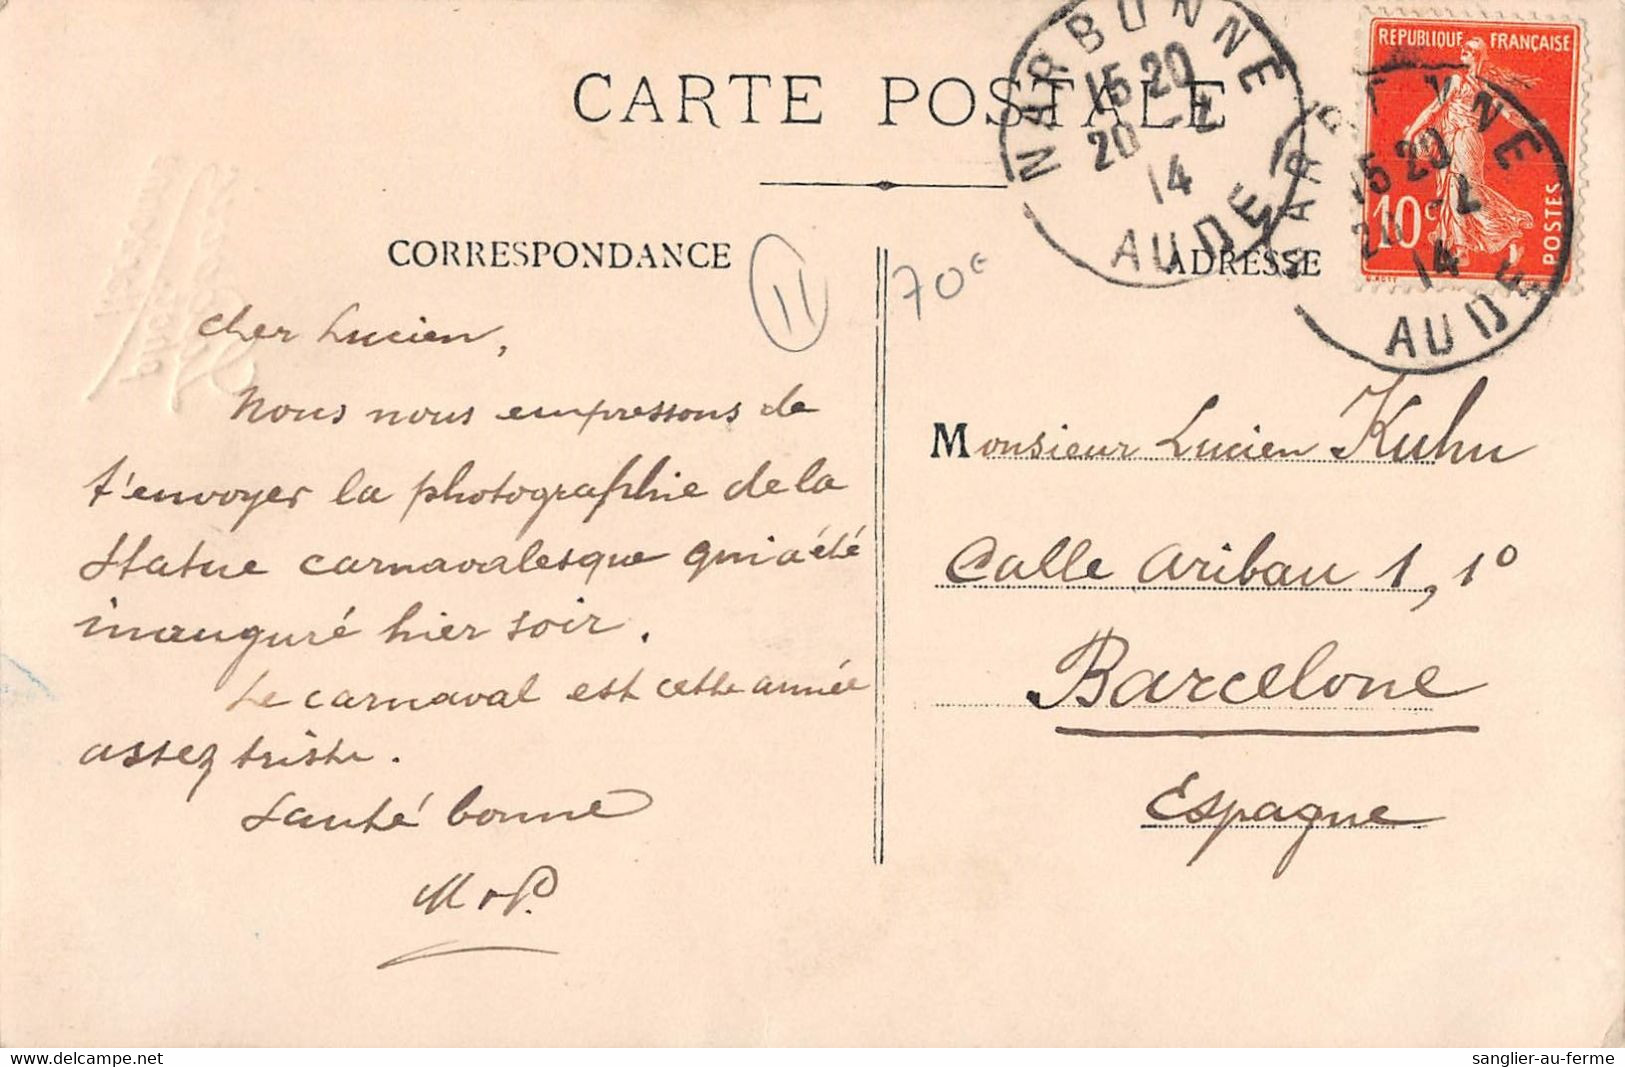 CARTE POSTALE
NARBONNE
15 20
20 -2
14
AUDE
REPUBLIQUE FRANÇAISE
10c
POSTES
15 20
-2
14
AUDE
CORRESPONDANCE
11
70€
ADRESSE
Cher Lucien,
Nous nous empressons de
t'envoyer la photographie de la
Statue carnavalesque qui a été
inauguré hier soir.
Le carnaval est cette année
assez triste.
Santé bonne
M & P.
Monsieur Lucien Kuhn
Calle Aribau 1, 1º
Barcelone
Espagne
www.delcampe.net
sanglier-au-ferme